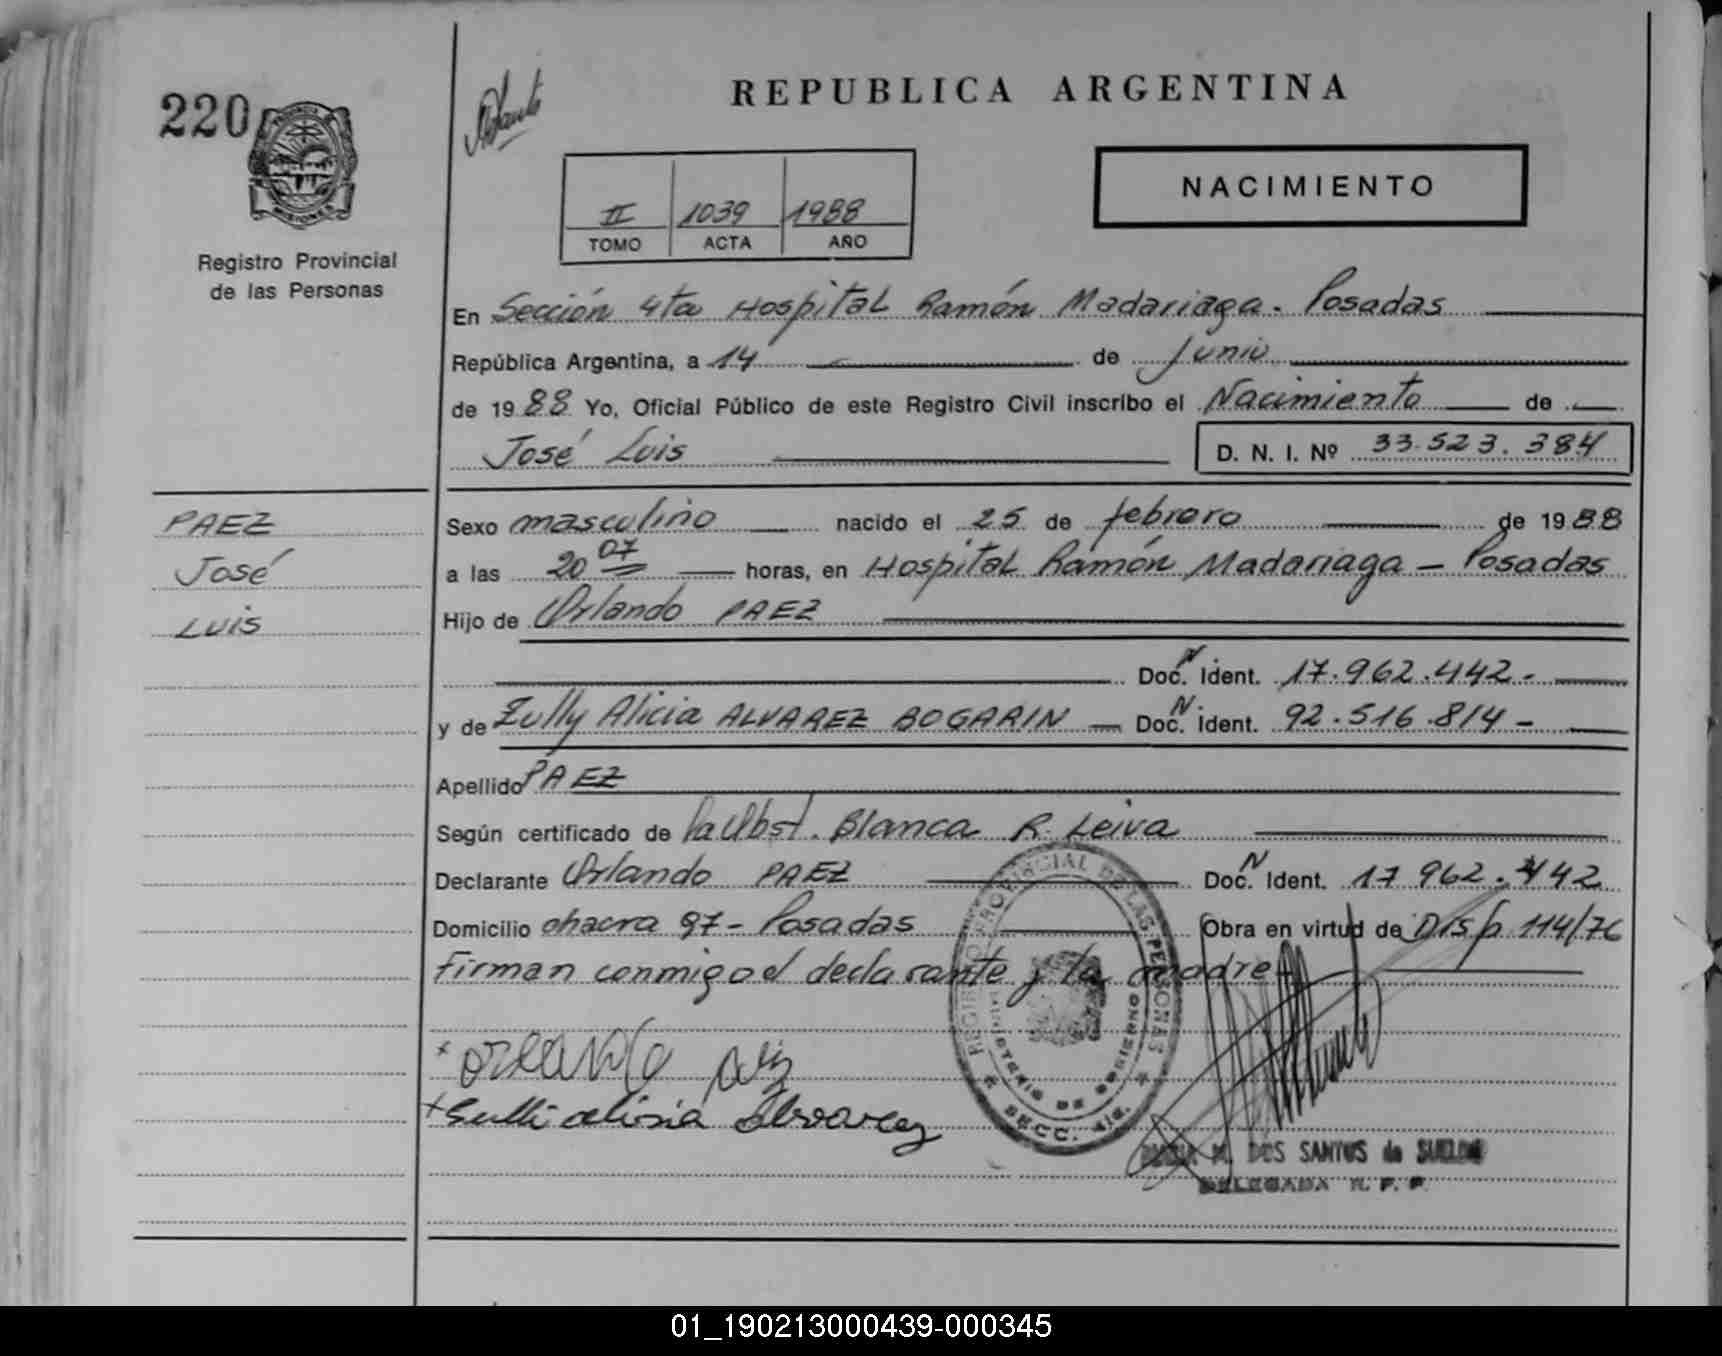 220
REPUBLICA ARGENTINA
NACIMIENTO
PROVINCIA
MISIONES
Registro Provincial
de las Personas
II 1039 1988
TOMO ACTA AÑO
En Sección 4ta Hospital Ramón Madariaga. Posadas
República Argentina, a 14 de Junio
de 1988 Yo, Oficial Público de este Registro Civil inscribo el Nacimiento de
José Luis D. N. I. Nº 33.523.384
PAEZ
José
Luis
Sexo masculino nacido el 25 de febrero de 1988
a las 20 07 horas, en Hospital Ramón Madariaga - Posadas
Hijo de Orlando PAEZ
Doc. N Ident. 17.962.442-
y de Zully Alicia ALVAREZ BOGARIN Doc. N Ident. 92.516.814-
Apellido PAEZ
Según certificado de la Obst. Blanca R. Leiva
Declarante Orlando PAEZ Doc. N Ident. 17 962.442
Domicilio chacra 97- Posadas Obra en virtud de Disp 114/76
Firman conmigo el declarante y la madre-
REGISTRO PROVINCIAL DE LAS PERSONAS
MINISTERIO DE GOBIERNO
SECC.
orlando
Sulli alisia Alvarez
M. DOS SANTOS de
DELEGADA R. P. P.
01_190213000439-000345